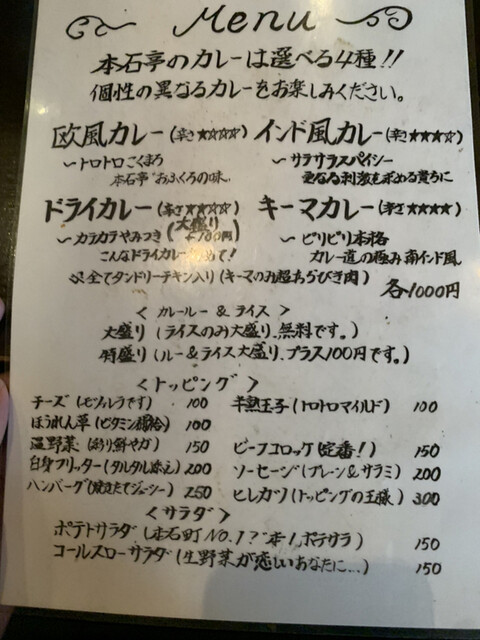 Menu
本石亭のカレーは選べる4種!!
個性の異なるカレーをお楽しみください。
欧風カレー(辛さ★☆☆☆) インド風カレー(辛さ★★★☆)
〜トロトロこくまろ 〜サラサラスパイシー
本石亭"おふくろの味。 更なる刺激を求める貴方に
ドライカレー(辛さ★★☆☆) キーマカレー(辛さ★★★★)
〜カラカラやみつき(大盛り+100円) 〜ビリビリ本格
こんなドライカレー 初めて! カレー道の極み南インド風。
全てタンドリーチキン入り(キーマのみ超あらびき肉)
各1000円
<カレールー & ライス>
大盛り(ライスのみ大盛り、無料です。)
特盛り(ルー&ライス大盛り、プラス100円です。)
<トッピング>
チーズ(モツァレラです) 100 半熟玉子(トロトロマイルド) 100
ほうれん草(ビタミン補給) 100
温野菜(彩り鮮やか) 150 ビーフコロッケ(定番!) 150
白身フリッター(タルタル添え) 200 ソーセージ(プレーン&サラミ) 200
ハンバーグ(焼きたてジューシー) 250 ヒレカツ(トッピングの王様) 300
<サラダ>
ポテトサラダ(本石町NO.1?"本"ポテサラ) 150
コールスローサラダ(生野菜が恋しいあなたに...) 150